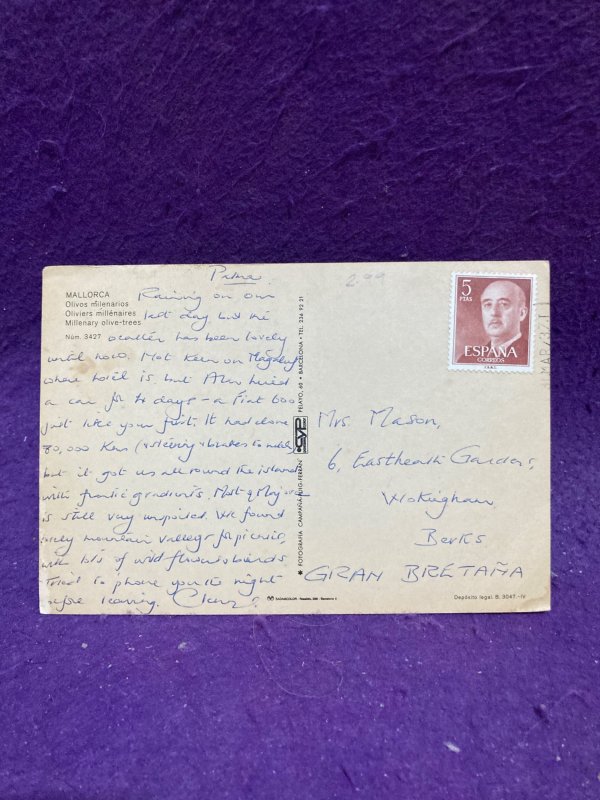 Palma
2.99
MALLORCA
Olivos milenarios
Oliviers millénaires
Millenary olive-trees
Núm. 3427
Raining on our
last day but the
weather has been lovely
until now. Not keen on Magaluf
where hotel is but hired
a car for 4 days - a Fiat 600
just like your first. It had done
80,000 Kms (& steering & brakes to match)
but it got us all round the island
with frantic gradients. Most of Majorca
is still very unspoiled. We found
lovely mountain valleys for picnics,
with lots of wild flowers & birds.
Tried to phone you the night
before leaving.
FOTOGRAFIA CAMPAÑÁ-PUIG-FERRAN
CYP
PELAYO, 60 • BARCELONA • TEL. 236 92 21
5
PTAS
ESPAÑA
CORREOS
Mrs. Mason,
6, Eastheath Gardens,
Wokingham
Berks
GRAN BRETAÑA
Depósito legal. B. 3047.-IV